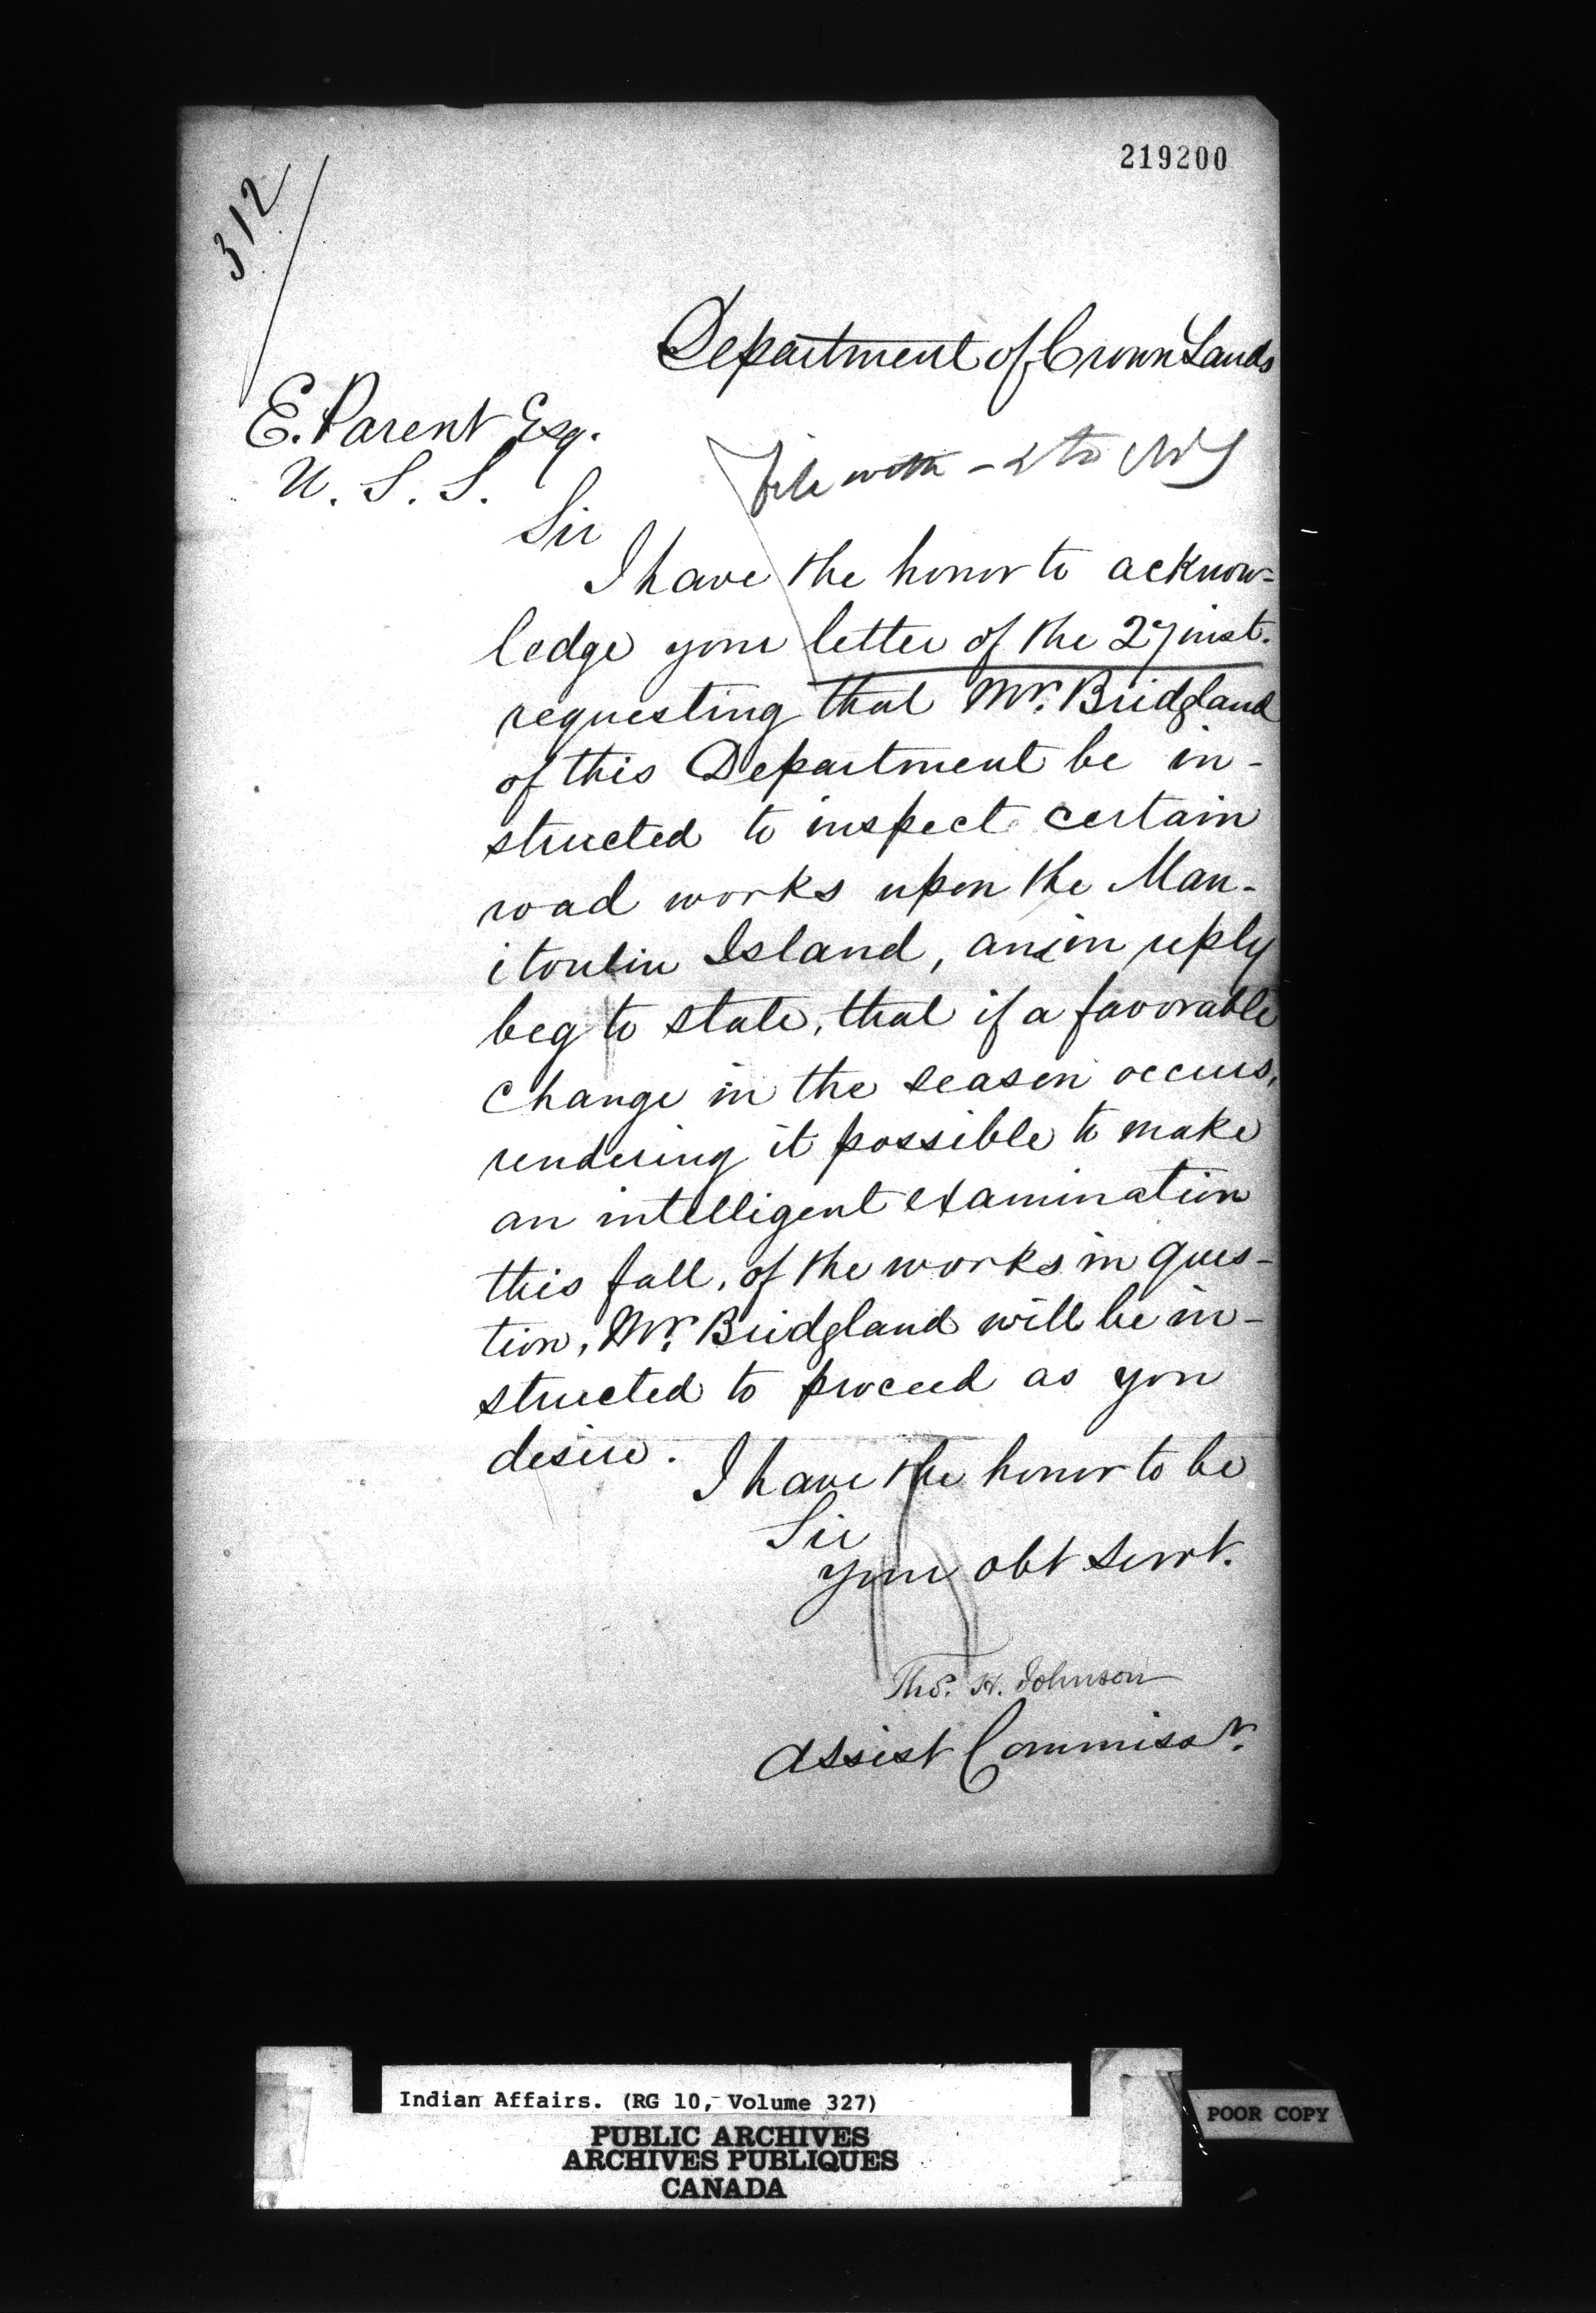 219200
312
Department of Crown Lands
E. Parent Esq.
U. S. S.
File with
Sir
I have the honor to acknow=
ledge your letter of the 27 inst.
requesting that Mr. Bridgland
of this Department be in-
structed to inspect certain
road works upon the Man-
itoulin Island, an in reply
beg to state, that if a favorable
change in the season occurs,
rendering it possible to make
an intelligent examination
this fall, of the works in ques-
tion, Mr. Bridgland will be in-
structed to proceed as you
desire.
I have the honor to be
Sir
your obt servt.
Tho. H. Johnson
Assist Commissr.
Indian Affairs. (RG 10, Volume 327)
PUBLIC ARCHIVES
ARCHIVES PUBLIQUES
CANADA
POOR COPY